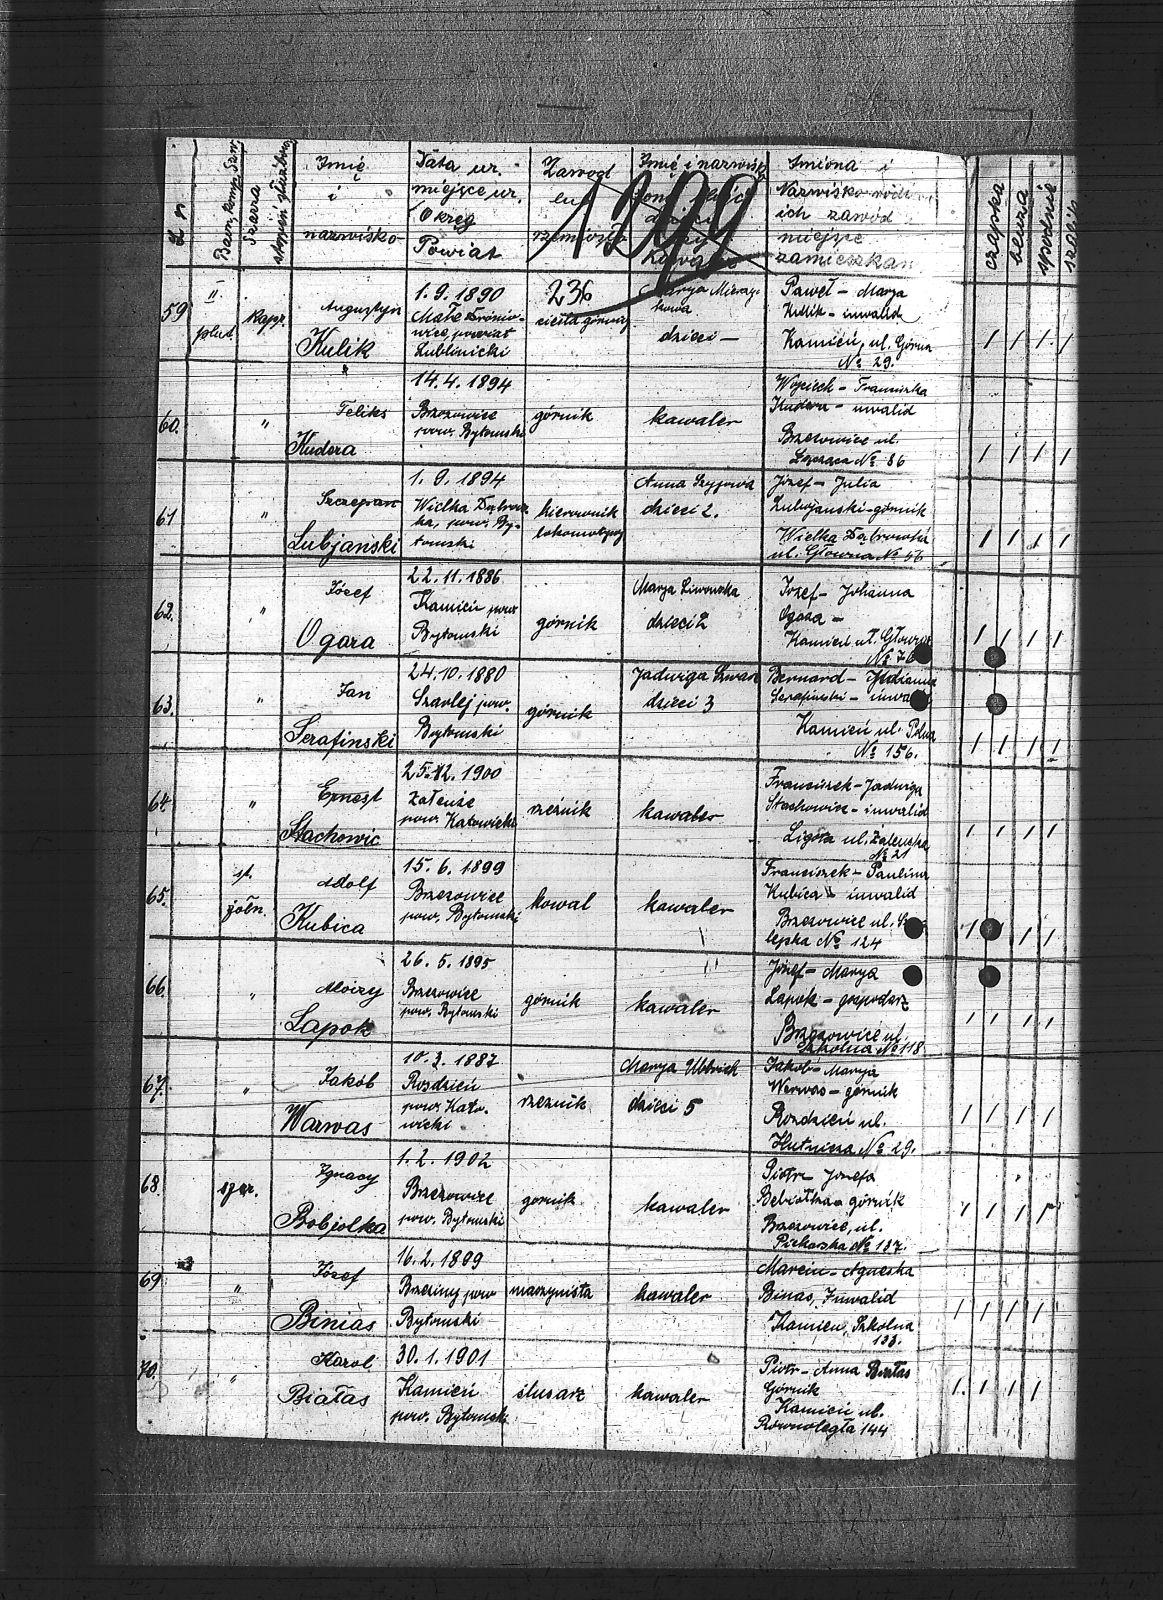 L n
Szarża
stopień służbowy
Imię
i
nazwisko
Data ur.
miejsce ur.
Okręg
Powiat
Zawód
lub
rzemiosło
Imię i nazwisko
dzieci
Imiona i
Nazwisko rodz
ich zawód
miejsce
zamieszkan
czapka
bluza
spodnie
1399
236
59
II
plut.
kapr.
Augustyn
Kulik
1. 9. 1890
powiat
Lublinicki
cieśla górniczy
Marya
dzieci —
Paweł – Marya
Kulik – inwalid
Kamień, ul. Górna
№ 29.
60.
"
Feliks
Kudera
14. 4. 1894
Brzozowice
pow. Bytomski
górnik
kawaler
Wojciech – Franciszka
Kudera – inwalid
Brzozowice ul.
№ 86
61
"
Szczepan
Lubjanski
1. 9. 1894
Wielka Dąbrow
ka, pow. By-
tomski
kierownik
lokomotywy
Anna Szyjowa
dzieci 2.
Józef – Julia
Lubojanski – górnik
Wielka Dąbrowka
ul. Główna № 56
62.
"
Józef
Ogara
22. 11. 1886
Kamień pow
Bytomski
górnik
Marja
dzieci 2
Jozef – Johanna
Ogaza –
Kamień ul. Główna
№ 76
63.
"
Jan
Serafinski
24. 10. 1880
Szarlej pow.
Bytomski
górnik
Jadwiga
dzieci 3
Bernard –
Serafinski –
Kamień ul. Polna
№ 156.
64.
"
Ernest
Stachowic
25. 12. 1900
Załenże
pow. Katowicki
rzeźnik
kawaler
Franciszek – Jadwiga
Stachowicz – inwalid
Ligota ul. Zalenska
№ 21
65.
st.
żołn.
Adolf
Kubica
15. 6. 1899
Brzezowice
pow. Bytomski
kowal
kawaler
Franciszek – Paulina
Kubica – inwalid
Brzezowice ul.
№ 124
66.
"
Alojzy
Lapok
26. 5. 1895
Brzezowice
pow. Bytomski
górnik
kawaler
Józef – Marya
Lapok – gospodarz
Brzozowice ul.
Szkolna № 118
67.
"
Jakób
Warwas
10. 3. 1887
Rozdzień
pow. Kato-
wicki
rzeźnik
Marya Ulbrich
dzieci 5
Jakób – Marya
Werwas – górnik
Rozdzień ul.
Hutnicza № 29.
68.
szer.
Ignacy
Bobjolka
1. 2. 1902
Brzezowice
pow. Bytomski
górnik
kawaler
Piotr Jozefa
Bebiołka – górnik
Brzezowice, ul.
Piekarska № 137.
69
"
Józef
Binias
16. 2. 1899
Brzeziny pow
Bytomski
maszynista
kawaler
Marcin – Agneska
Binas, Inwalid
Kamien, Szkolna
133.
70.
"
Karol
Białas
30. 1. 1901
Kamień
pow. Bytomski
ślusarz
kawaler
Piotr – Anna Białas
Górnik
Kamień ul.
Równoległa 144